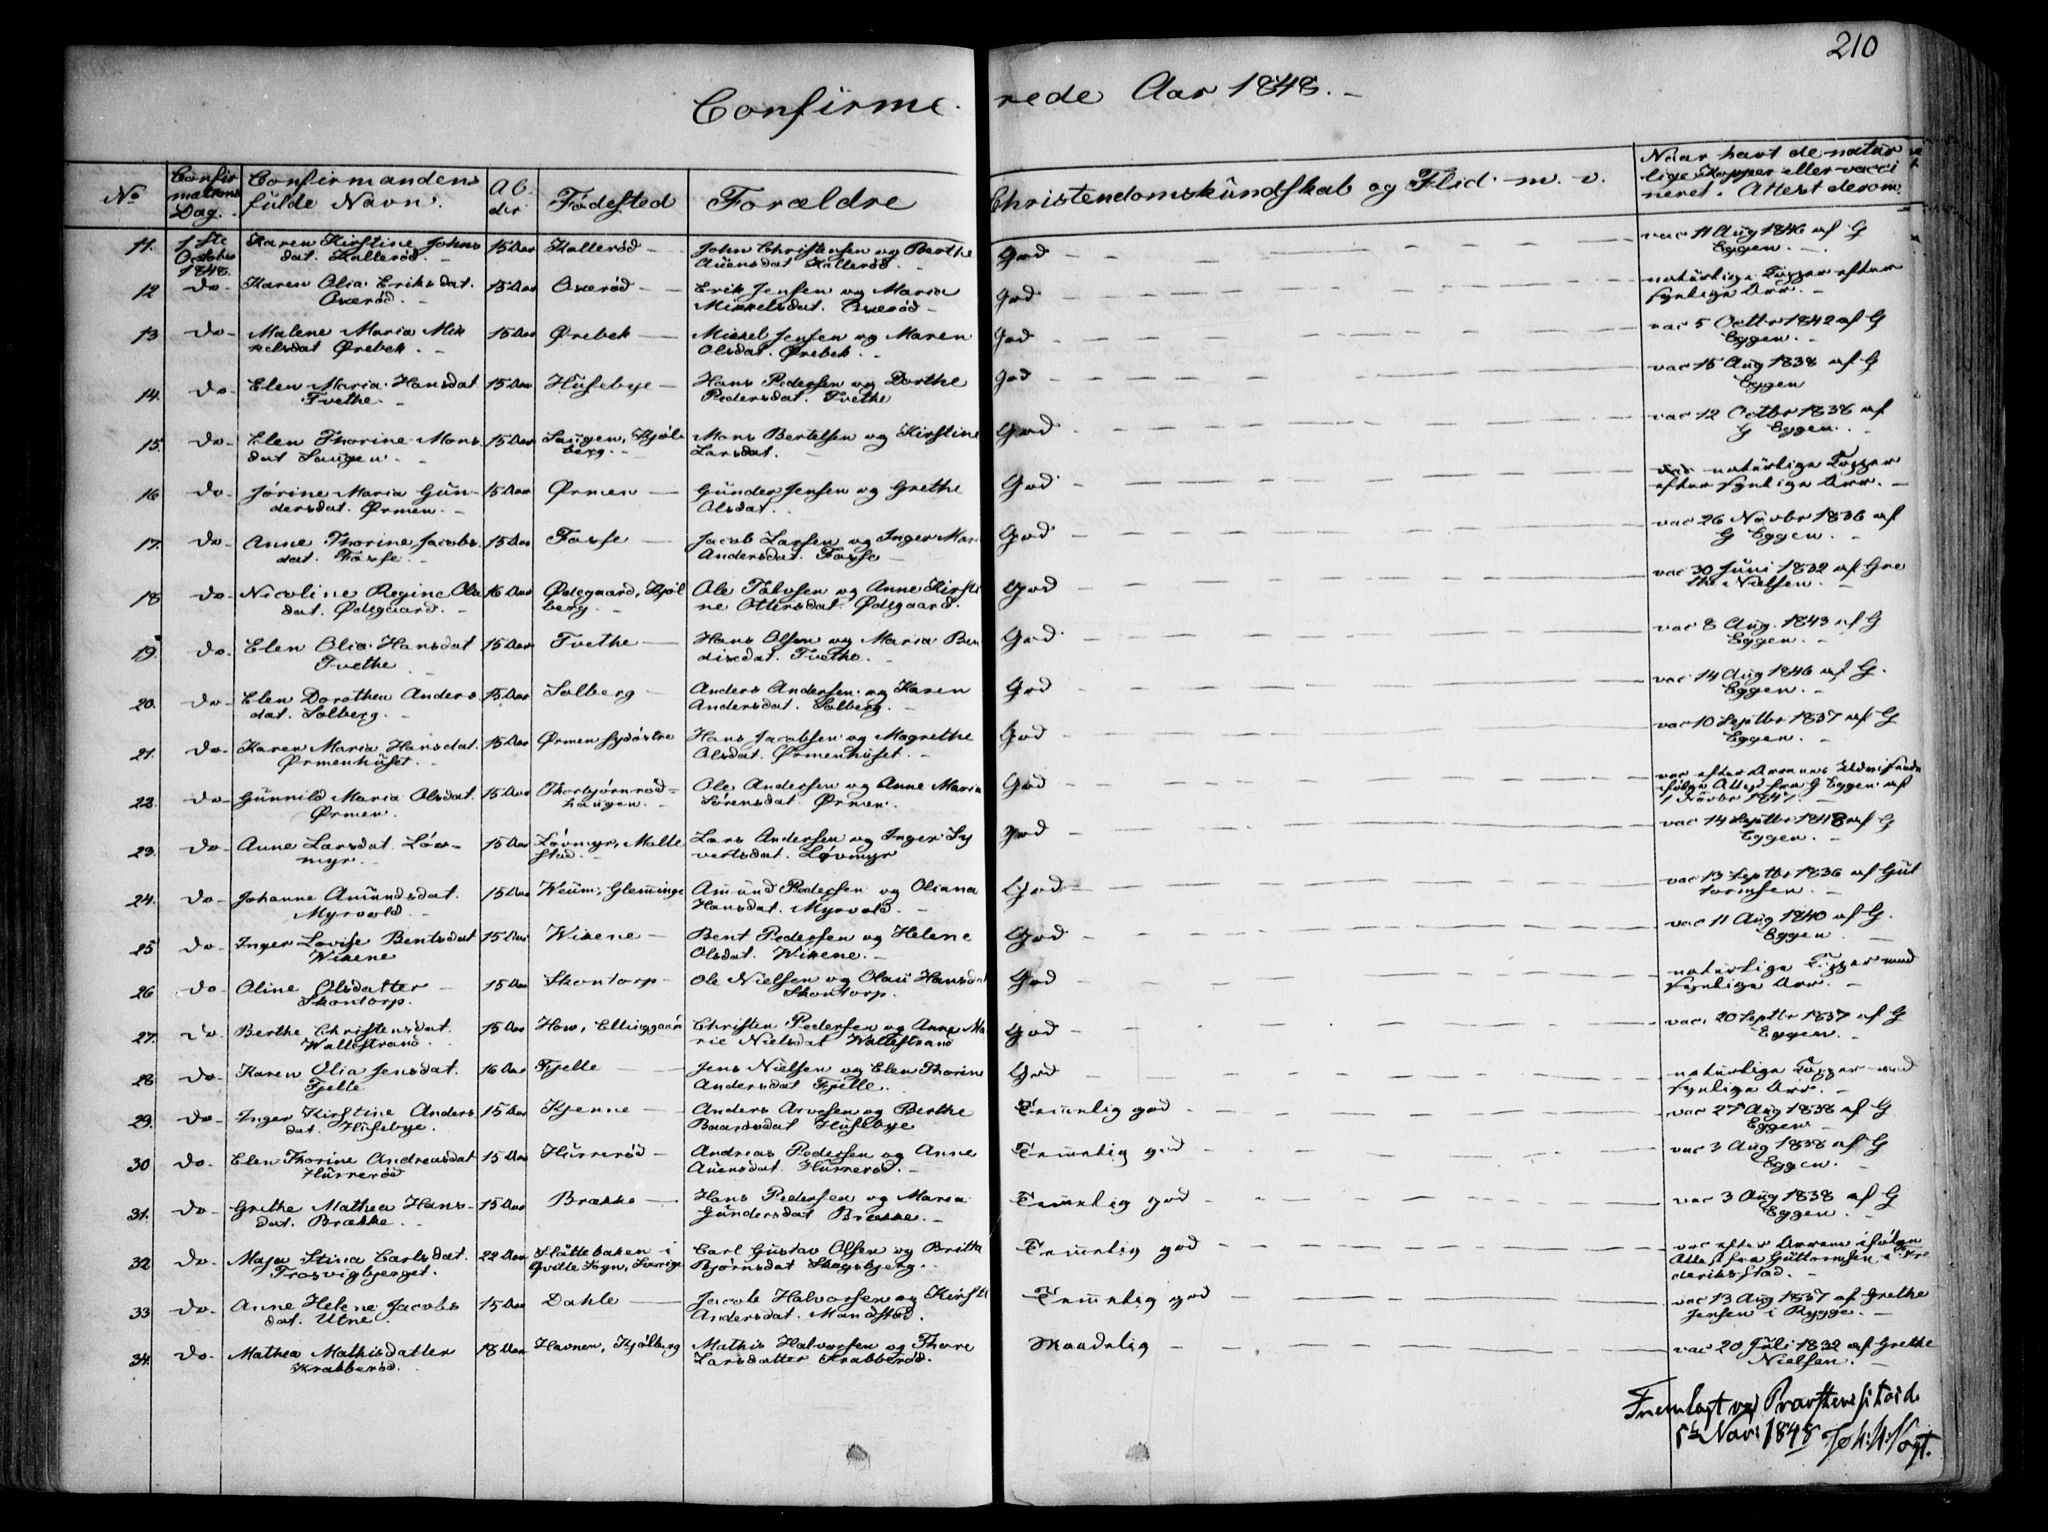 210
Confirmerede Aar 1848.
No
Confirmations Dag.
Confirmandens fulde Navn.
Alder
Fødested
Forældre
Christendomskundskab og Flid m. v.
Naar havt de naturlige Kopper eller vaccineret. Attest derom
11. 1ste October 1848. Karen Kirstine Johnsdat. Kallerød. 15 Aar Kallerød John Christensen og Berthe Auensdat Kallerød. God vac 11 Aug 1846 af G Eggen.
12 do Karen Olia Eriksdat. 15 Aar Erik Jensen og Maria Mikkelsdat. God naturlige Kopper efter synlige Arr.
13 do Malene Maria Mikkelsdat Ørebek. 15 Aar Ørebek Mikkel Jensen og Maren Olsdat. Ørebek. God vac 5 Octbr 1842 af G Eggen.
14. do Elen Maria Hansdat Tvethe. 15 Aar Husebye Hans Pedersen og Dorthe Pedersdat. Tvethe God vac 15 Aug 1838 af G Eggen
15. do Elen Thorine Monsdat Haugen. 15 Aar Haugen, Kjølberg. Mons Bertelsen og Kirstine Larsdat. God vac 12 Octbr 1838 af G Eggen.
16 do Jørine Maria Gundersdat. Ørmen. 15 Aar Ørmen Gunder Jensen og Grethe Olsdat. God naturlige Kopper efter synlige Arr.
17. do Anne Thorine Jacobsdat. Fosse. 15 Aar Fosse Jacob Larsen og Inger Mari Andersdat. Fosse God vac 26 Novbr 1836 af G Eggen.
18 do Nicoline Regine Olsdat. Ødegaard. 16 Aar Ødegaard, Kjølberg. Ole Tolvsen og Anne Kirstine Ottersdat. Ødegaard. God vac 30 Juni 1832 af Grethe Nielsen.
19. do Elen Olia Hansdat Tvethe 15 Aar Tvethe Hans Olsen og Maria Bendixdat. Tvethe. God vac 8 Aug. 1843 af G Eggen.
20. do Elen Dorothea Andersdat. Solberg. 15 Aar Solberg Anders Andersen og Karen Andersdat. Solberg. God vac 14 Aug 1846 af G. Eggen.
21. do Karen Maria Hansdat. Ørmenhuset. 15 Aar Ørmen sydøstre Hans Jacobsen og Magrethe Olsdat. Ørmenhuset. God vac 10 Septbr 1837 af G Eggen.
22. do Gunnild Maria Olsdat. Ørmen. 15 Aar Thorbjørnrød-Haugen. Ole Andersen og Anne Maria Sørensdat. Ørmen. God vac efter Arrenes Udvisende ifølge Attest fra G Eggen af 1 Novbr 1847.
23. do Anne Larsdat. Løvmyr. 15 Aar Løvmyr, Mallestad. Lars Andersen og Inger Syvertsdat. Løvmyr God vac 14 Septbr 1848 af G Eggen.
24. do Johanne Amundsdat. Myrvold. 15 Aar Weum, Glemminge Amund Pedersen og Oliana Hansdat. Myrvold. God vac 13 Septbr 1836 af Guttormsen.
25 do Inger Lovise Bentsdat Wikene 15 Aar Wikene Bent Pedersen og Helene Olsdat. Wikene. God vac 11 Aug 1840 af G. Eggen
26 do Oline Olsdatter Skontorp. 15 Aar Skontorp Ole Nielsen og Olau Hansdat Skontorp. God naturlige Kopper med synlige Arr.
27. do Berthe Christensdat. Wallestrand. 15 Aar How, Ellinggaard Christen Pedersen og Anne Marie Nielsdat Wallestrand God vac. 20 Septbr 1837 af G Eggen.
28 do Karen Olia Jensdat. Fjelle 16 Aar Fjelle Jens Nielsen og Elen Thorine Andersdat Fjelle. God naturlige Kopper med synlige Arr.
29. do Inger Kirstine Andersdat. Husebye. 15 Aar Kjenne Anders Arvesen og Berthe Baardsdat Husebye Temmelig god vac 27 Aug 1838 af G Eggen
30 do Elen Thorine Andreasdat Hurrerød 15 Aar Hurrerød Andreas Pedersen og Anne Auensdat. Hurrerød. Temmelig god vac 3 Aug 1838 af G Eggen.
31. do Grethe Mathea Hansdat. Brække. 15 Aar Brække Hans Pedersen og Maria Gundersdat Brække. Temmelig god vac 3 Aug 1838 af G Eggen.
32 do Maja Stina Carlsdat. Trosvigbjerget. 22 Aar i Qville Sogn, Sverige Carl Gustav Olsen og Britta Bjørnsdat Skogsbjerg. Temmelig god vac efter Arrene ifølge Attest fra Guttormsen i Frederiksstad.
33 do Anne Helene Jacobsdat. Utne. 15 Aar Dahle Jacob Halvorsen og Kirsti Andersdat. Mandstad. Temmelig god vac 13 Aug 1837 af Grethe Jensen i Rygge.
34. do Mathea Mathisdatter Krabberød. 18 Aar Havnen, Kjølberg Mathis Halvorsen og Thore Larsdatter Krabberød. Maadelig vac 20 Juli 1832 af Grethe Nielsen.
Fremlagt ved
Nov: 1848